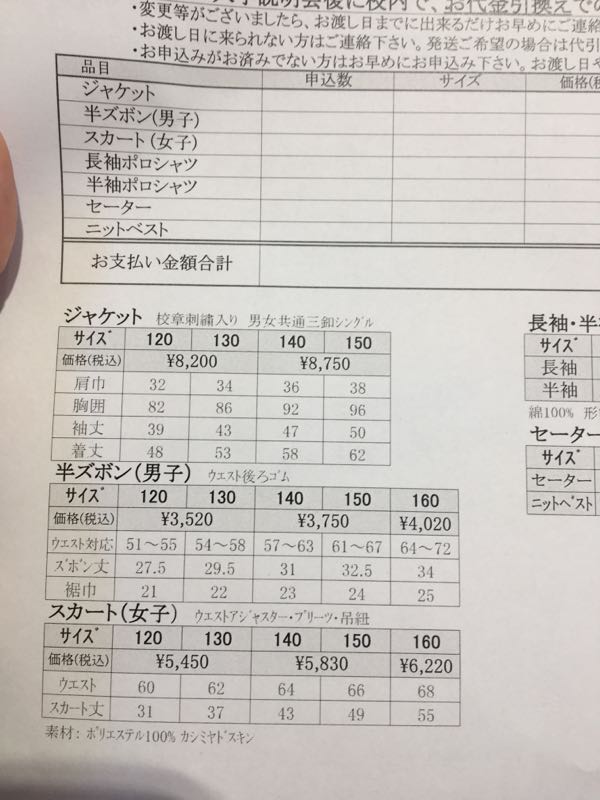 説明会後に校内で、お代金引換えでの
・変更等がございましたら、お渡し日までに出来るだけお早めにご連絡
・お渡し日に来られない方はご連絡下さい。発送ご希望の場合は代引
・お申込みがお済みでない方はお早めにお申込み下さい。お渡し日や
品目 申込数 サイズ 価格(税
ジャケット
半ズボン(男子)
スカート(女子)
長袖ポロシャツ
半袖ポロシャツ
セーター
ニットベスト
お支払い金額合計
ジャケット 校章刺繍入り 男女共通三釦シングル
サイズ 120 130 140 150
価格(税込) ¥8,200 ¥8,750
肩巾 32 34 36 38
胸囲 82 86 92 96
袖丈 39 43 47 50
着丈 48 53 58 62
半ズボン(男子) ウエスト後ろゴム
サイズ 120 130 140 150 160
価格(税込) ¥3,520 ¥3,750 ¥4,020
ウエスト対応 51～55 54～58 57～63 61～67 64～72
ズボン丈 27.5 29.5 31 32.5 34
裾巾 21 22 23 24 25
スカート(女子) ウエストアジャスター・プリーツ・吊紐
サイズ 120 130 140 150 160
価格(税込) ¥5,450 ¥5,830 ¥6,220
ウエスト 60 62 64 66 68
スカート丈 31 37 43 49 55
素材: ポリエステル100% カシミヤドスキン
長袖・半
サイズ
長袖
半袖
綿100% 形
セーター
サイズ
セーター
ニットベスト